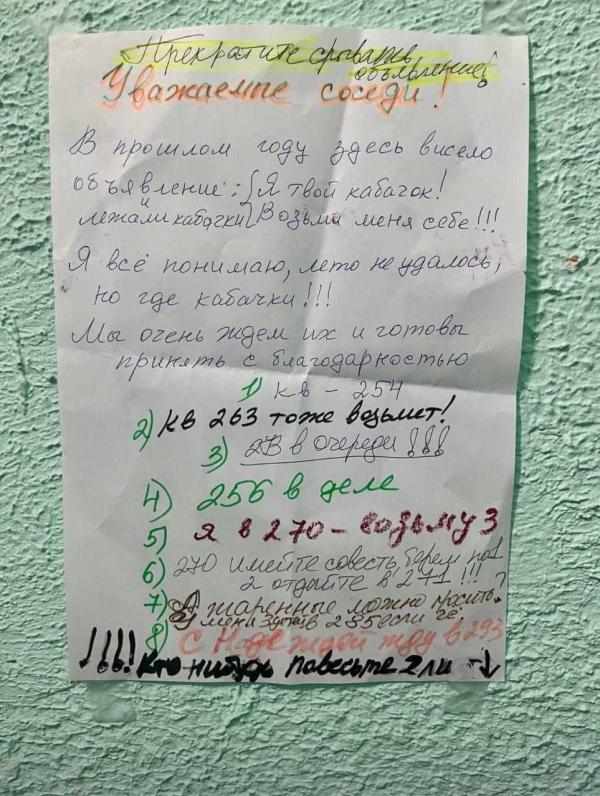 Прекратите срывать
объявление!
Уважаемые соседи!
В прошлом году здесь висело
объявление: Я твой кабачок!
и лежали кабачки Возьми меня себе!!!
Я всё понимаю, лето не удалось,
но где кабачки!!!
Мы очень ждем их и готовы
принять с благодарностью
1) кв - 254
2) кв 263 тоже возьмет!
3) 273 в очереди!!!
4) 256 в деле
5) Я в 270 - возьму 3
6) 270 имейте совесть берем по 1
2 отдайте в 271!!!
7) А жаренные можно носить?
У меня в 255 если че
8) С Надеждой жду в 293
!!!! Кто нибудь повесьте 2 ли